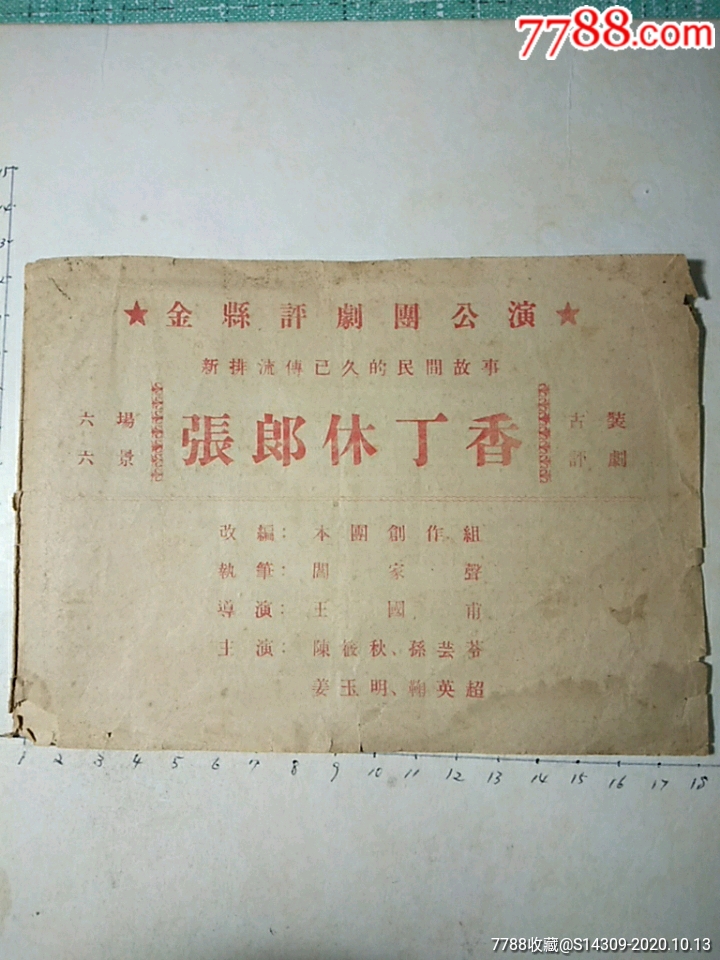 7788.com
★金縣評劇團公演★
新排流傳已久的民間故事
六場 張郎休丁香 古裝
六景 評劇
改編：本團創作組
執筆：閻家聲
導演：王國甫
主演：陳筱秋、孫芸苓
姜玉明、鞠英超
15
14
1 2 3 4 5 6 7 8 9 10 11 12 13 14 15 16 17 18
7788收藏@S14309-2020.10.13